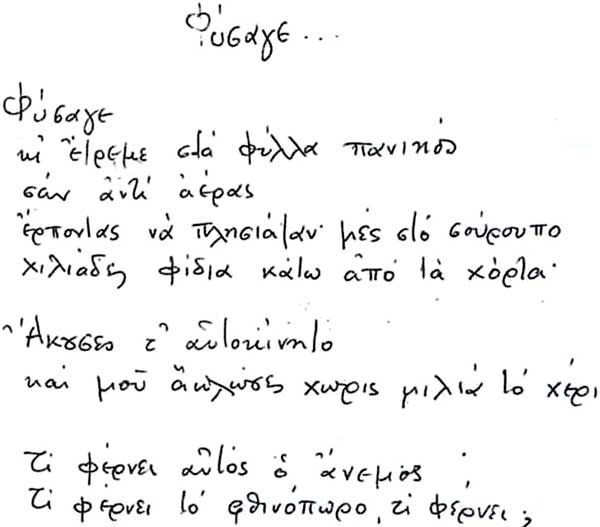 Φύσαγε...
Φύσαγε
κι ἔτρεμε στὰ φύλλα πανικὸς
σὰν ἀντὶ ἀέρας
ἕρποντας νὰ πλησιάζαν μὲς στὸ σούρουπο
χιλιάδες φίδια κάτω ἀπὸ τὰ χόρτα·
Ἄκουσες τ' αὐτοκίνητο
καὶ μοῦ ἅπλωσες χωρὶς μιλιὰ τὸ χέρι
Τί φέρνει αὐτὸς ὁ ἄνεμος ;
Τί φέρνει τὸ φθινόπωρο, τί φέρνει ;